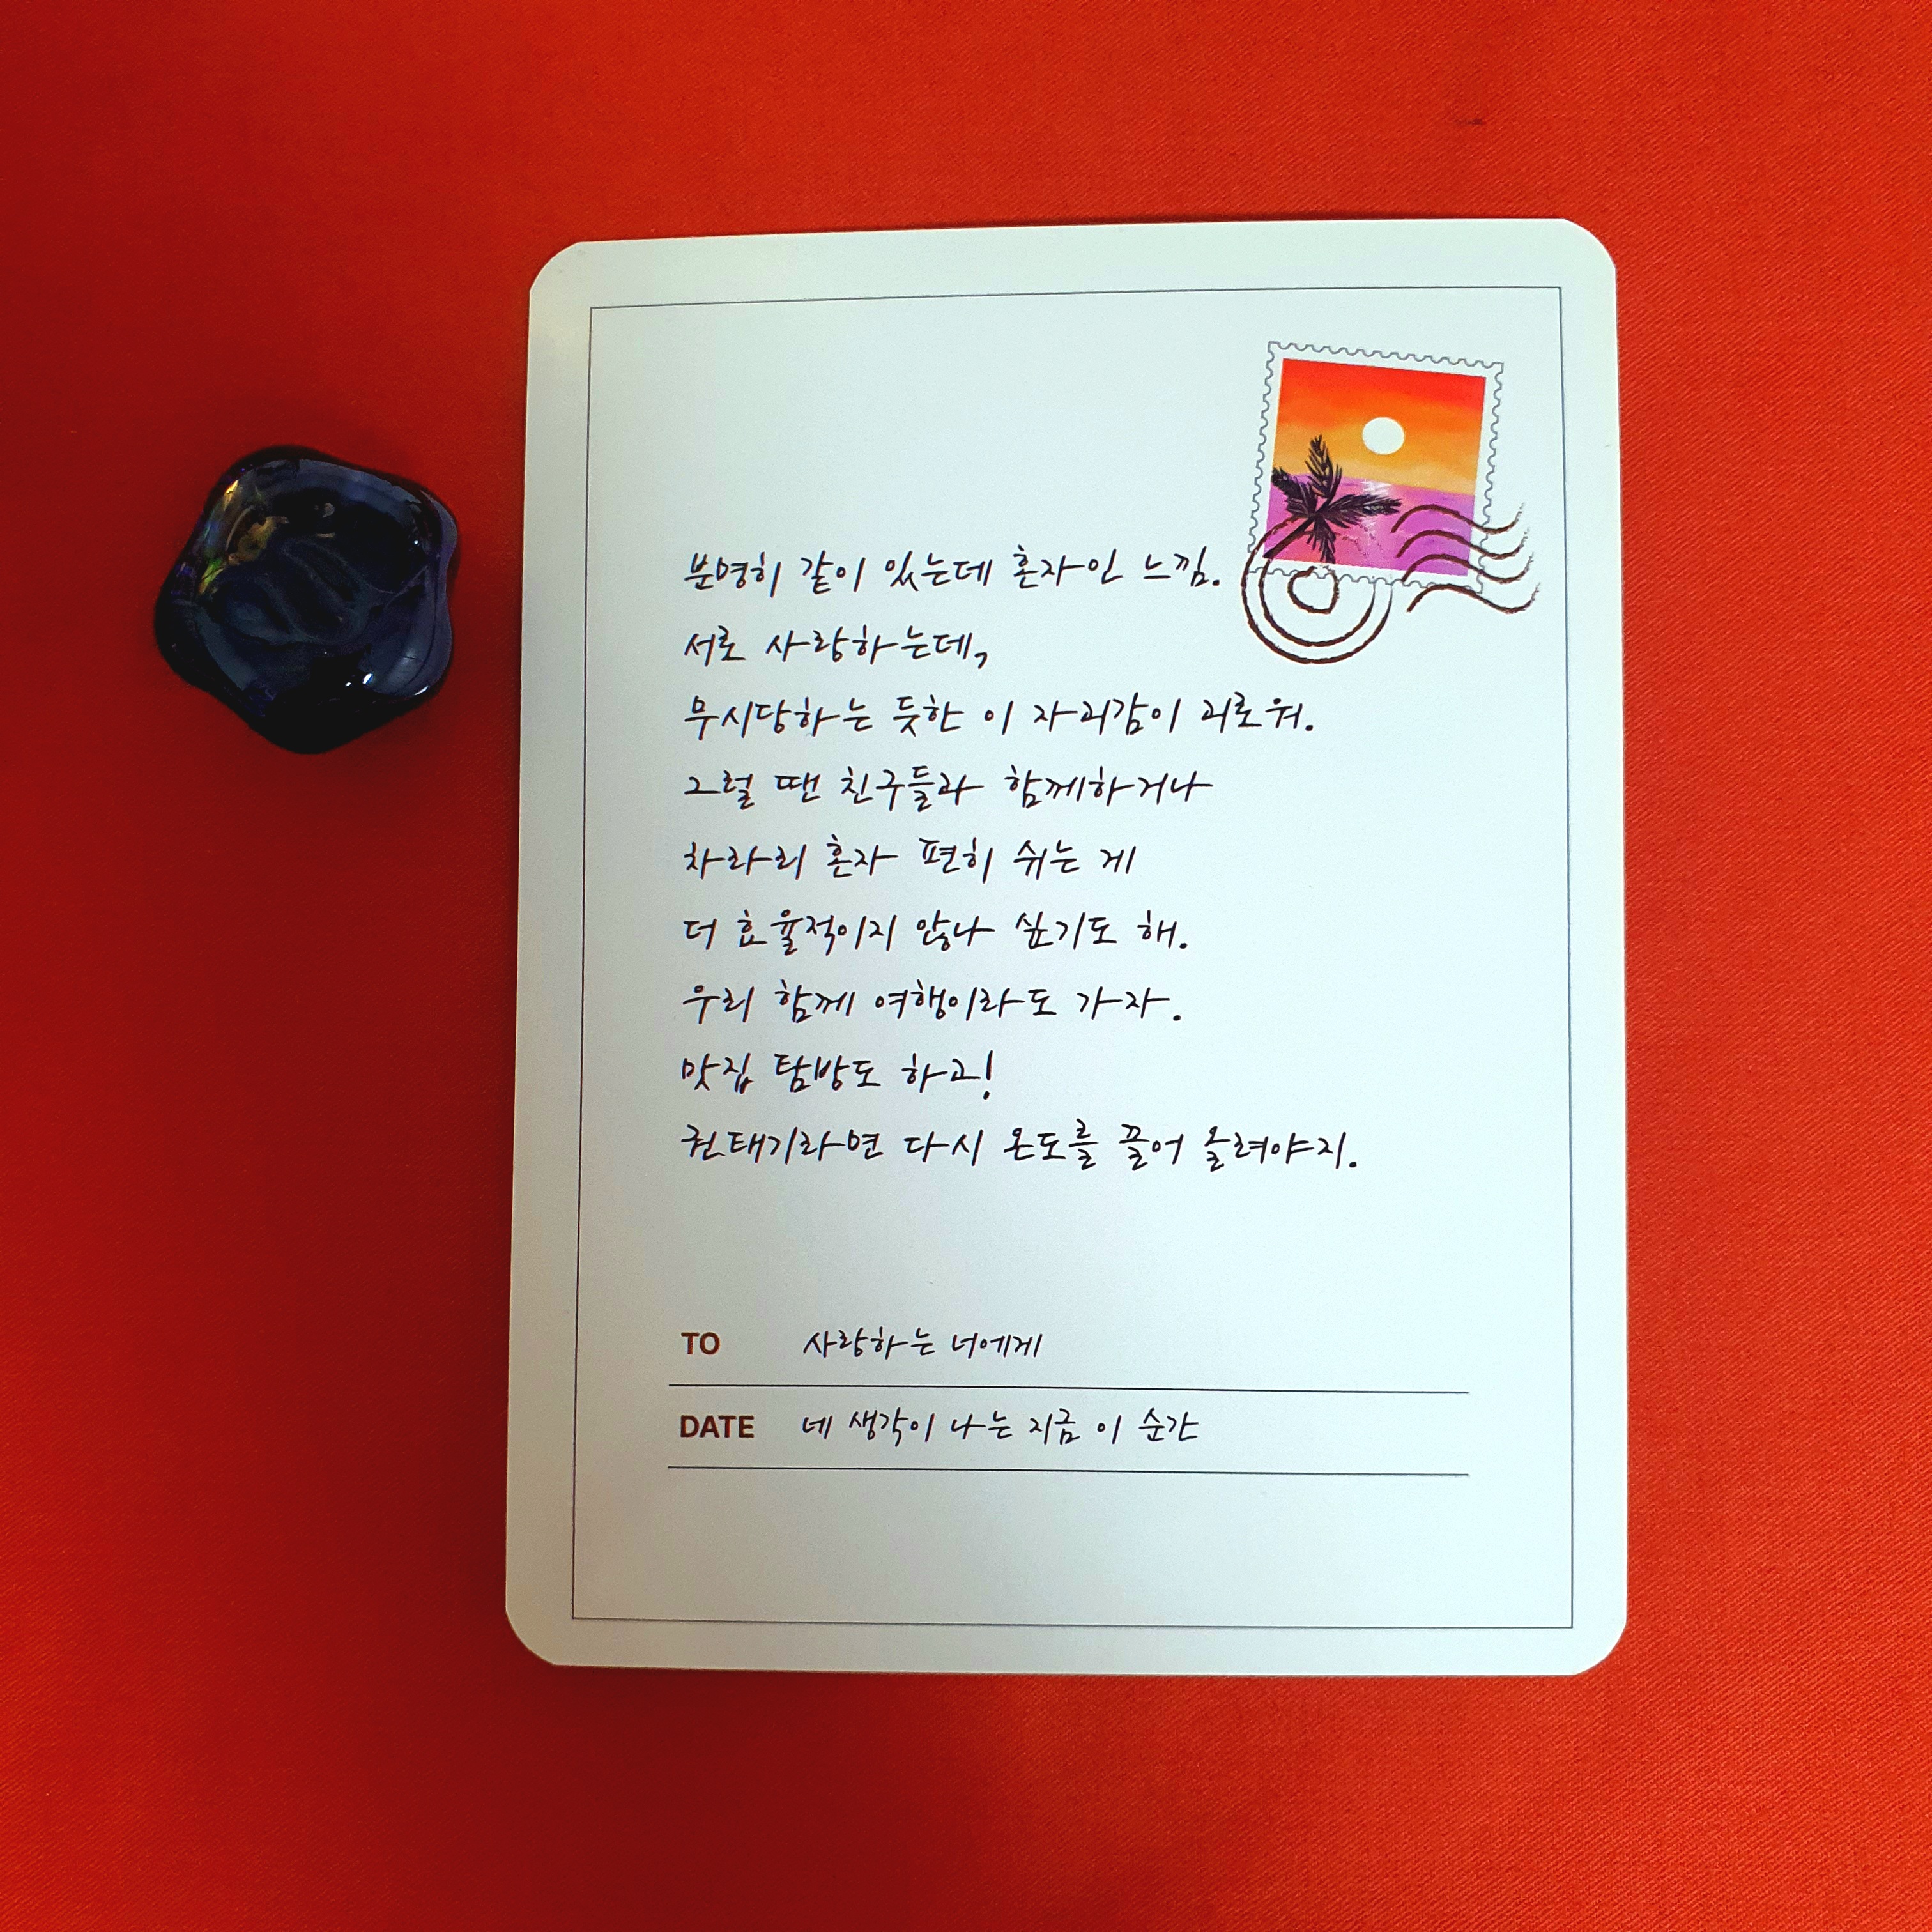 분명히 같이 있는데 혼자인 느낌.
서로 사랑하는데,
무시당하는 듯한 이 자괴감이 괴로워.
그럴 땐 친구들과 함께하거나
차라리 혼자 편히 쉬는 게
더 효율적이지 않나 싶기도 해.
우리 함께 여행이라도 가자.
맛집 탐방도 하고!
권태기라면 다시 온도를 끌어 올려야지.
TO 사랑하는 너에게
DATE 네 생각이 나는 지금 이 순간